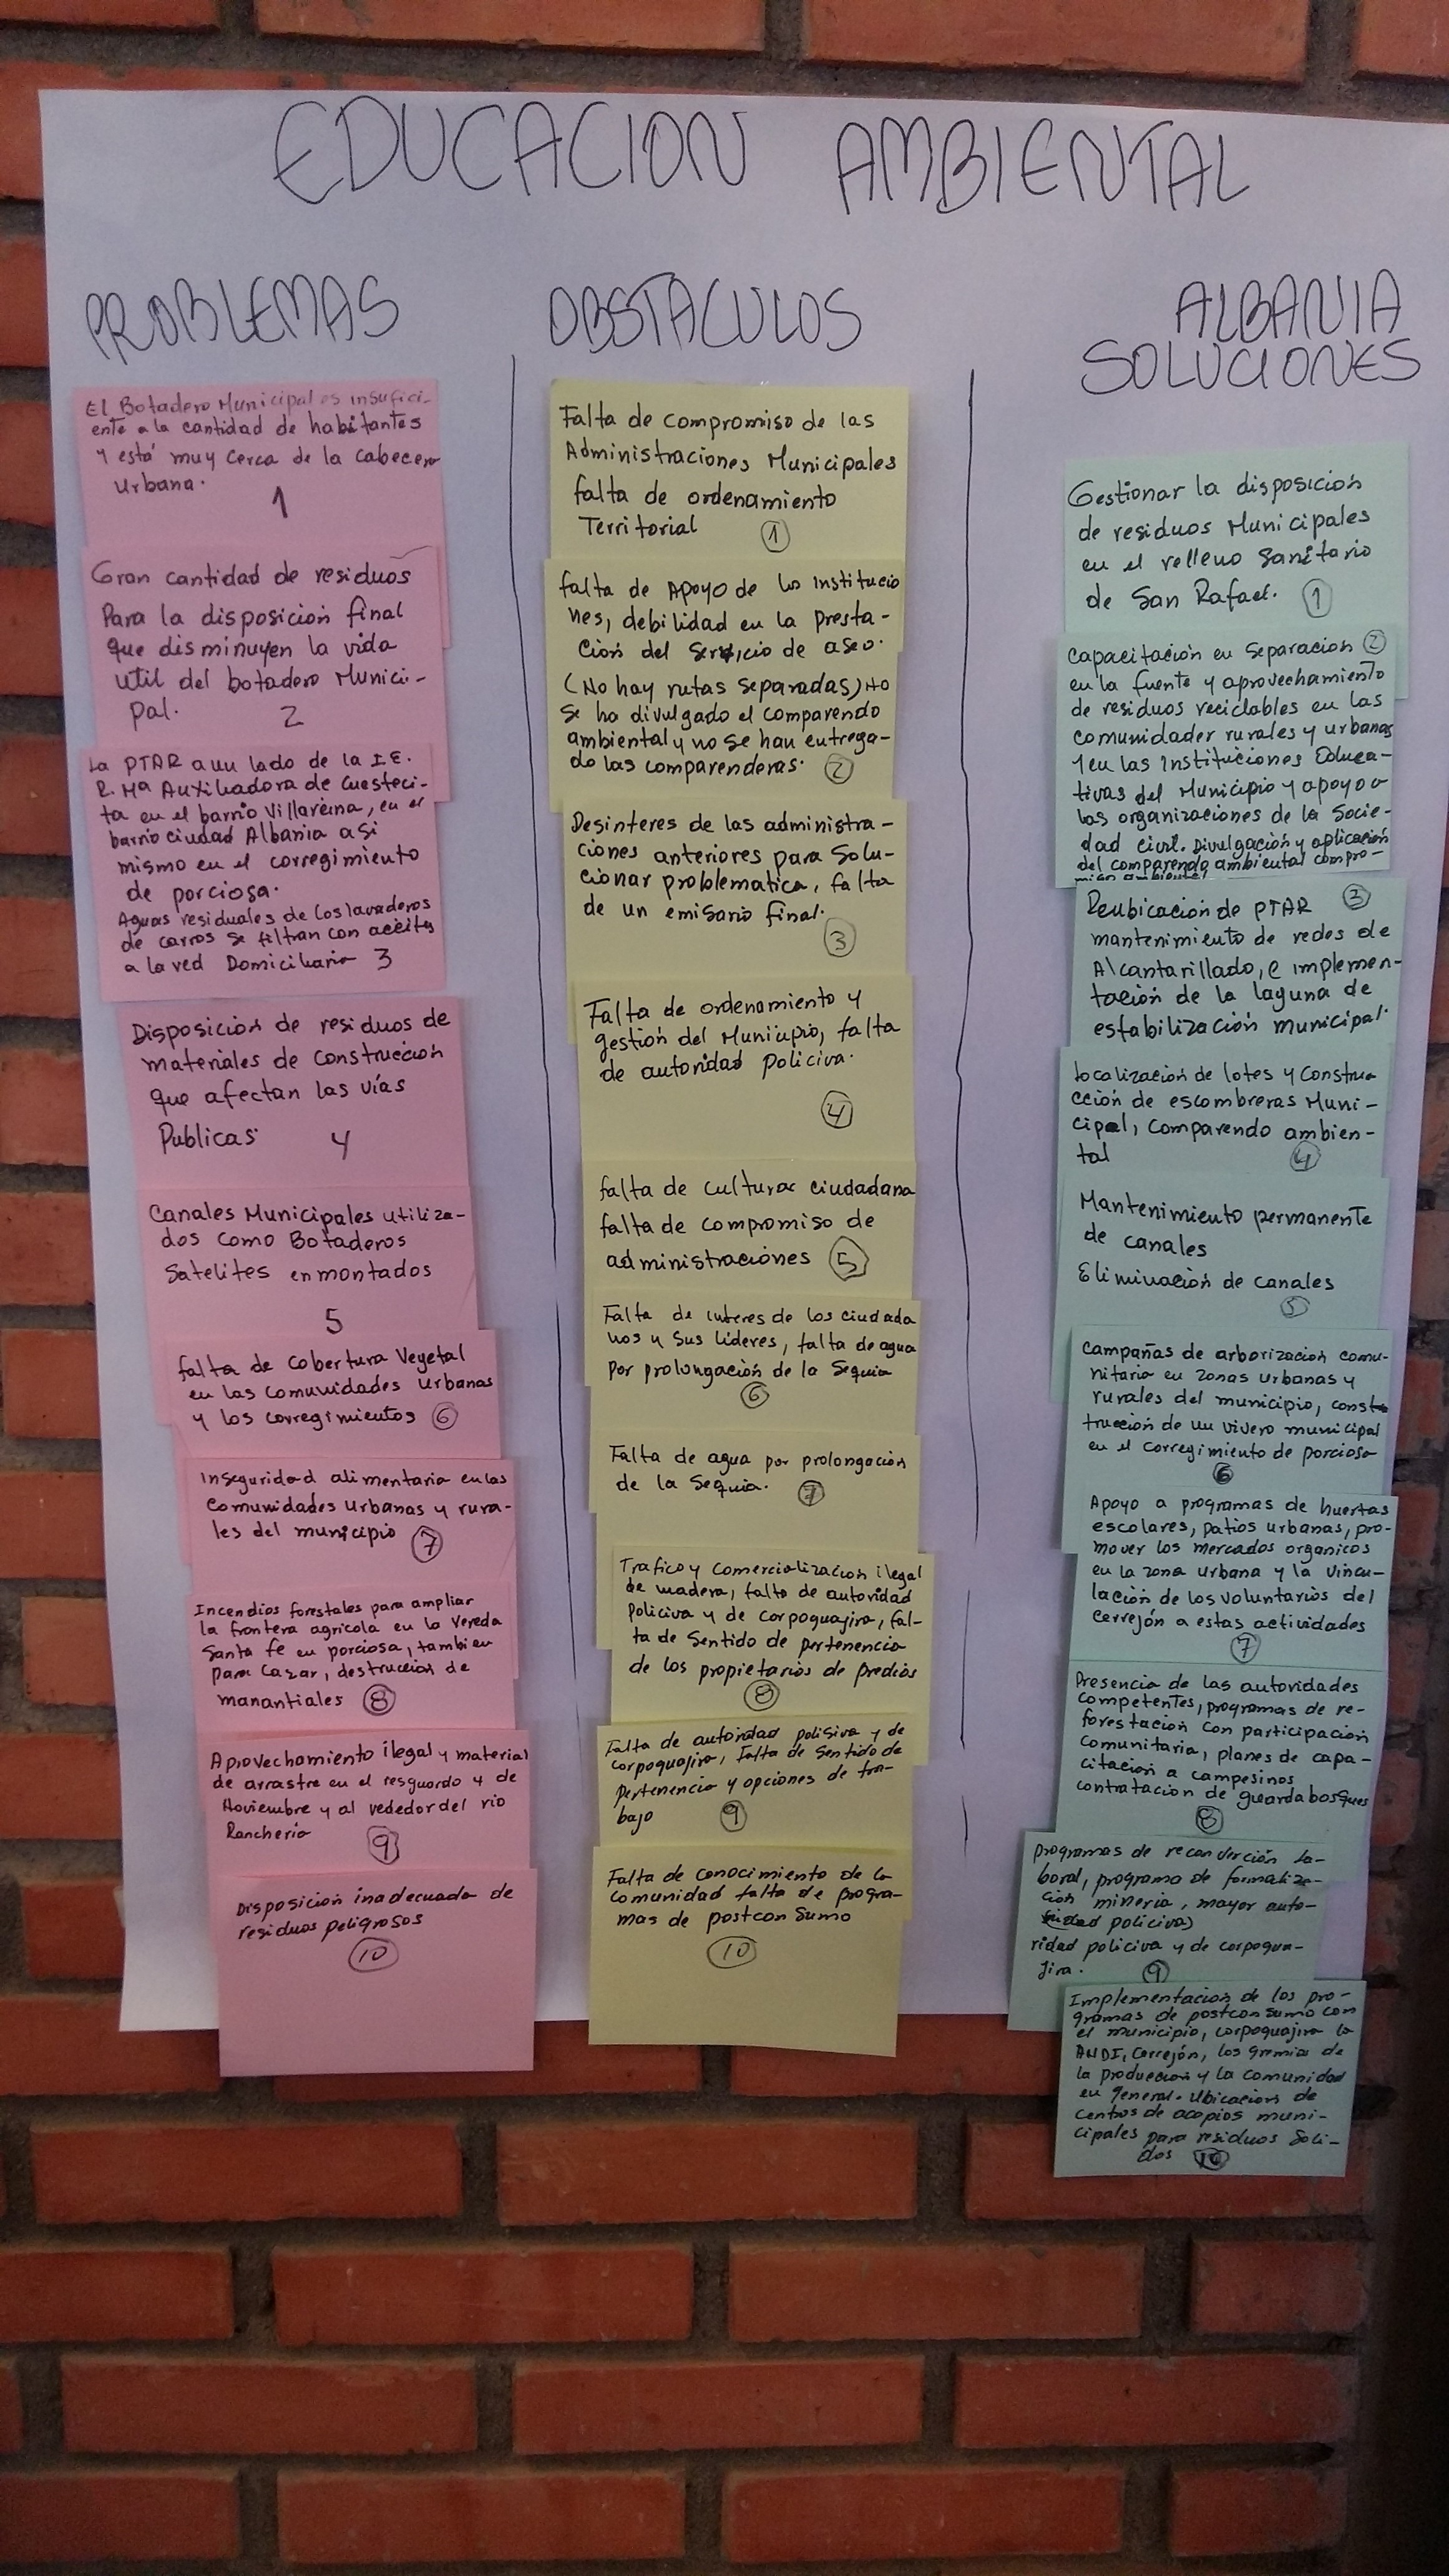 EDUCACION AMBIENTAL
PROBLEMAS
El Botadero Municipal es insufici-
ente a la cantidad de habitantes
y está muy cerca de la cabecera
Urbana.
1
Gran cantidad de residuos
Para la disposicion final
que disminuyen la vida
util del botadero Munici-
pal.
2
La PTAR a un lado de la I.E.
R. Mª Auxiliadora de Cuesteci-
ta en el barrio Villareina, en el
barrio ciudad Albania asi
mismo en el corregimiento
de porciosa.
Aguas residuales de los lavaderos
de carros se filtran con aceites
a la red Domiciliaria 3
Disposicion de residuos de
materiales de construccion
que afectan las vías
Publicas. 4
Canales Municipales utiliza-
dos como Botaderos
Satelites enmontados
5
falta de cobertura Vegetal
en las comunidades Urbanas
y los corregimientos 6
Inseguridad alimentaria en las
comunidades Urbanas y rura-
les del municipio 7
Incendios forestales para ampliar
la frontera agricola en la Vereda
Santa fe en porciosa, tambien
para cazar, destruccion de
manantiales 8
Aprovechamiento ilegal y material
de arrastre en el resguardo 4 de
Noviembre y al rededor del rio
Rancheria
9
Disposicion inadecuada de
residuos peligrosos
10
OBSTACULOS
Falta de compromiso de las
Administraciones Municipales
falta de ordenamiento
Territorial 1
falta de Apoyo de las institucio
nes, debilidad en la presta-
ción del servicio de aseo.
(No hay rutas separadas) No
se ha divulgado el comparendo
ambiental y no se han entrega-
do las comparenderas. 2
Desinteres de las administra-
ciones anteriores para solu-
cionar problematica, falta
de un emisario final.
3
Falta de ordenamiento y
gestión del Municipio, falta
de autoridad policiva.
4
falta de cultura ciudadana
falta de compromiso de
administraciones 5
Falta de interes de los ciudada
nos y sus lideres, falta de agua
por prolongación de la Sequia
6
Falta de agua por prolongacion
de la Sequia. 7
Trafico y comercializacion ilegal
de madera, falta de autoridad
policiva y de corpoguajira, fal-
ta de sentido de pertenencia
de los propietarios de predios
8
Falta de autoridad polisiva y de
corpoguajira, falta de sentido de
pertenencia y opciones de tra-
bajo 9
Falta de conocimiento de la
comunidad falta de progra-
mas de postconsumo
10
ALBANIA
SOLUCIONES
Gestionar la disposicion
de residuos Municipales
en el relleno sanitario
de San Rafael. 1
Capacitación en separacion 2
en la fuente y aprovechamiento
de residuos reciclables en las
comunidades rurales y urbanas
y en las instituciones Educa-
tivas del Municipio y apoyo a
las organizaciones de la Socie-
dad civil. Divulgación y aplicación
del comparendo ambiental compro-
miso ambiental
Reubicación de PTAR 3
mantenimiento de redes de
Alcantarillado, e implemen-
tación de la laguna de
estabilización municipal.
Localización de lotes y constru-
cción de escombreras Muni-
cipal, comparendo ambien-
tal 4
Mantenimiento permanente
de canales
Eliminación de canales
5
Campañas de arborizacion comu-
nitaria en zonas urbanas y
rurales del municipio, cons-
trucción de un vivero municipal
en el corregimiento de porciosa
6
Apoyo a programas de huertas
escolares, patios urbanas, pro-
mover los mercados organicos
en la zona urbana y la vincu-
lación de los voluntarios del
cerrejón a estas actividades
7
Presencia de las autoridades
competentes, programas de re-
forestación con participación
comunitaria, planes de capa-
citacion a campesinos
contratacion de guardabosques
8
programas de reconverción la-
boral, programa de formaliza-
cion mineria, mayor auto-
policiva)
ridad policiva y de corpogua-
jira. 9
Implementacion de los pro-
gramas de postconsumo con
el municipio, corpoguajira la
ANDI, Cerrejón, los gremios de
la produccion y la comunidad
en general. Ubicacion de
centros de acopios muni-
cipales para residuos soli-
dos 10